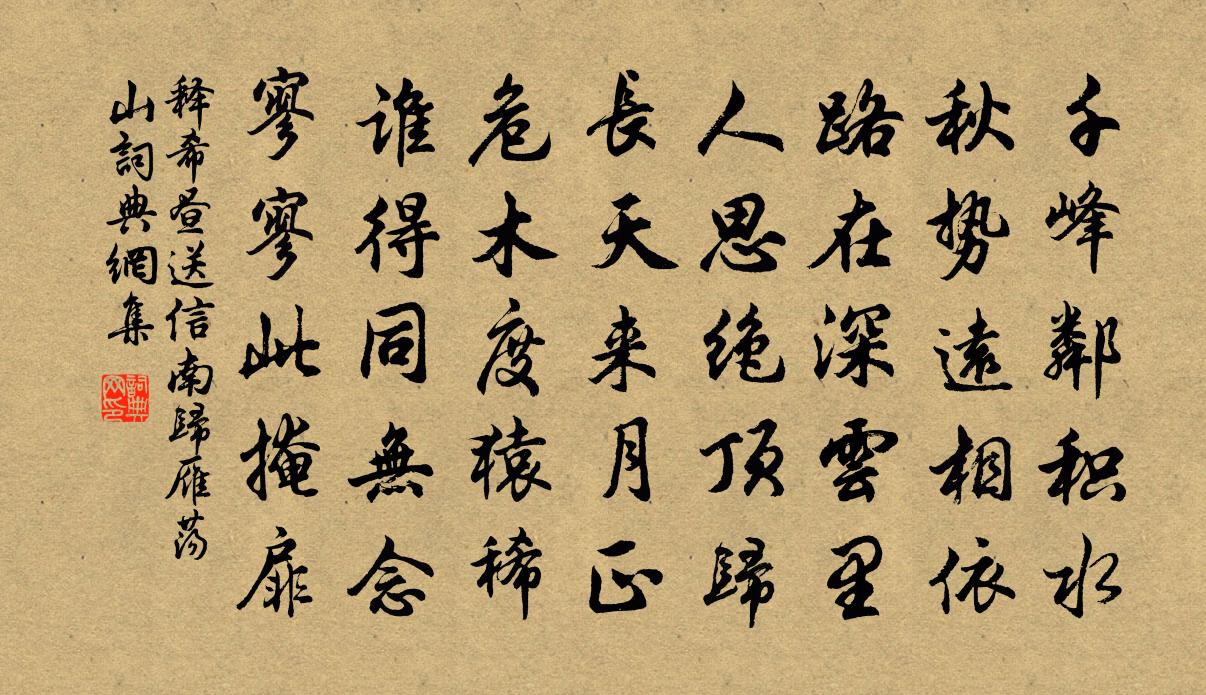 千峰鄰积水
秋势遠相依
路在深雲里
人思绝頂歸
長天来月正
危木度猿稀
誰得同無念
寥寥此掩扉
释希昼送信南歸雁荡
山詞典網集
詞典
网印